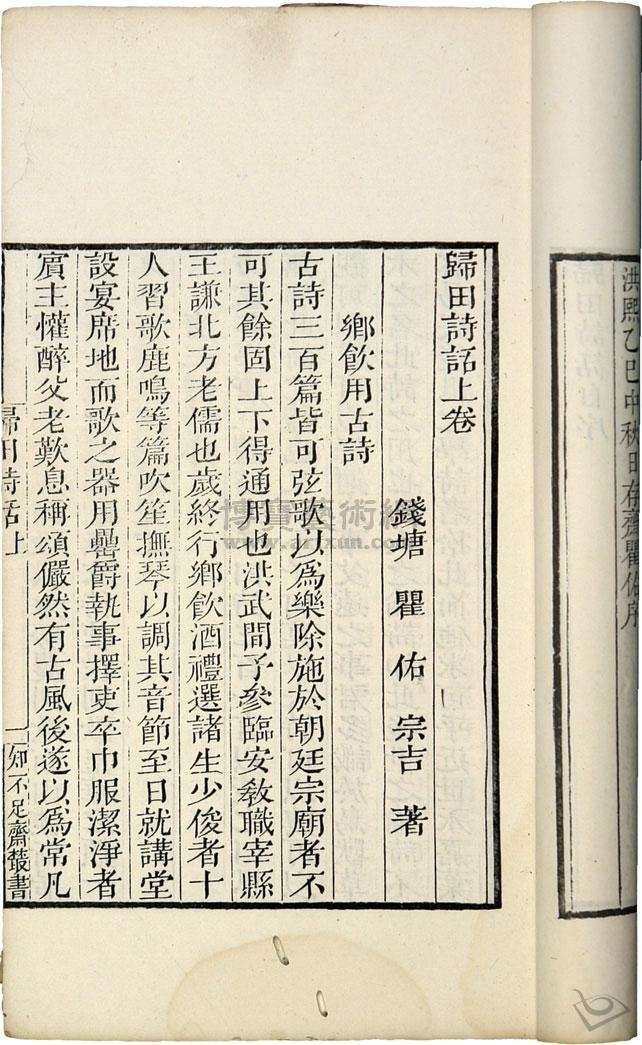 洪熙乙巳中秋日存齋瞿佑序
歸田詩話上卷
錢塘 瞿 佑 宗吉 著
鄉飲用古詩
古詩三百篇皆可弦歌以爲樂除施於朝廷宗廟者不
可其餘固上下得通用也洪武間予參臨安教職宰縣
王謙北方老儒也歲終行鄉飲酒禮選諸生少俊者十
人習歌鹿鳴等篇吹笙撫琴以調其音節至日就講堂
設宴席地而歌之器用罍爵執事擇吏卒巾服潔淨者
賓主懽醉父老歎息稱頌儼然有古風後遂以爲常凡
歸田詩話上
一
知不足齋叢書
博寶藝術網
www.artxun.com